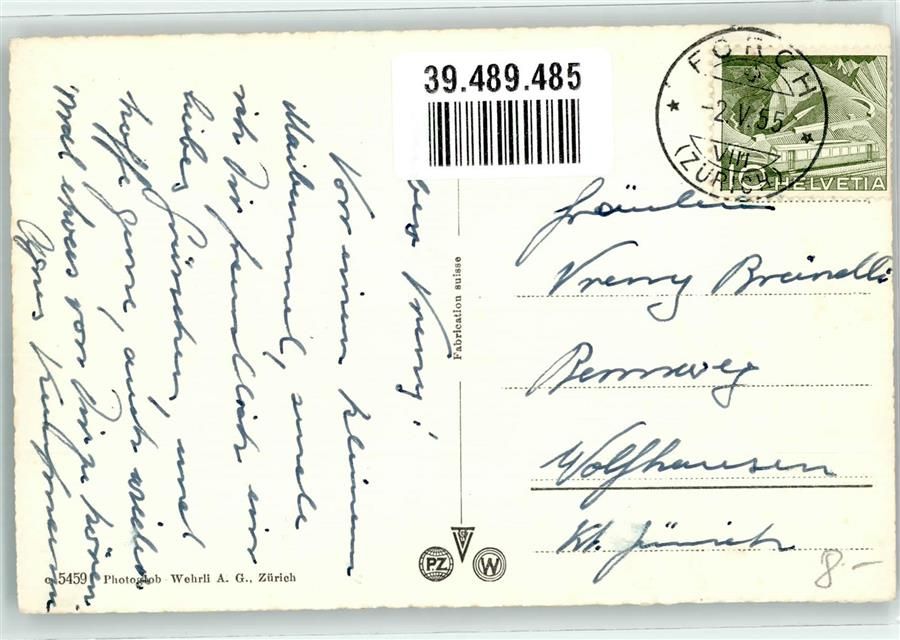 39.489.485
FORCH
-2.V.55
VIII
(ZÜRICH)
10 HELVETIA
Vreny!
Von einem kleinen
Maibummel, sende
ich Dir herzlich ein
liebes Grüsschen, und
hoffe gerne, auch wieder
mal etwas von Dir zu hören
Agnes
Fräulein
Vreny Brändli
Rennweg
Wolfhausen
Kt. Zürich
Fabrication suisse
PZ
W
5459 Photoglob-Wehrli A. G., Zürich
8.-